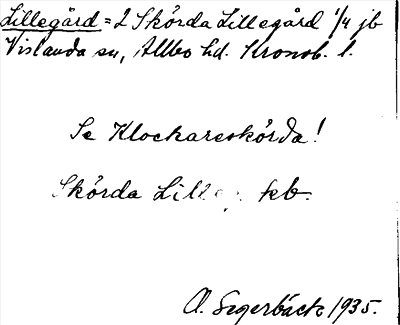 Lillegård = 2 Skörda Lillegård 1/4 jb
Vislanda sn, Allbo hd. Kronob. l.
Se Klockareskörda!
Skörda Lille kb.
A. Segerbäck 1935.